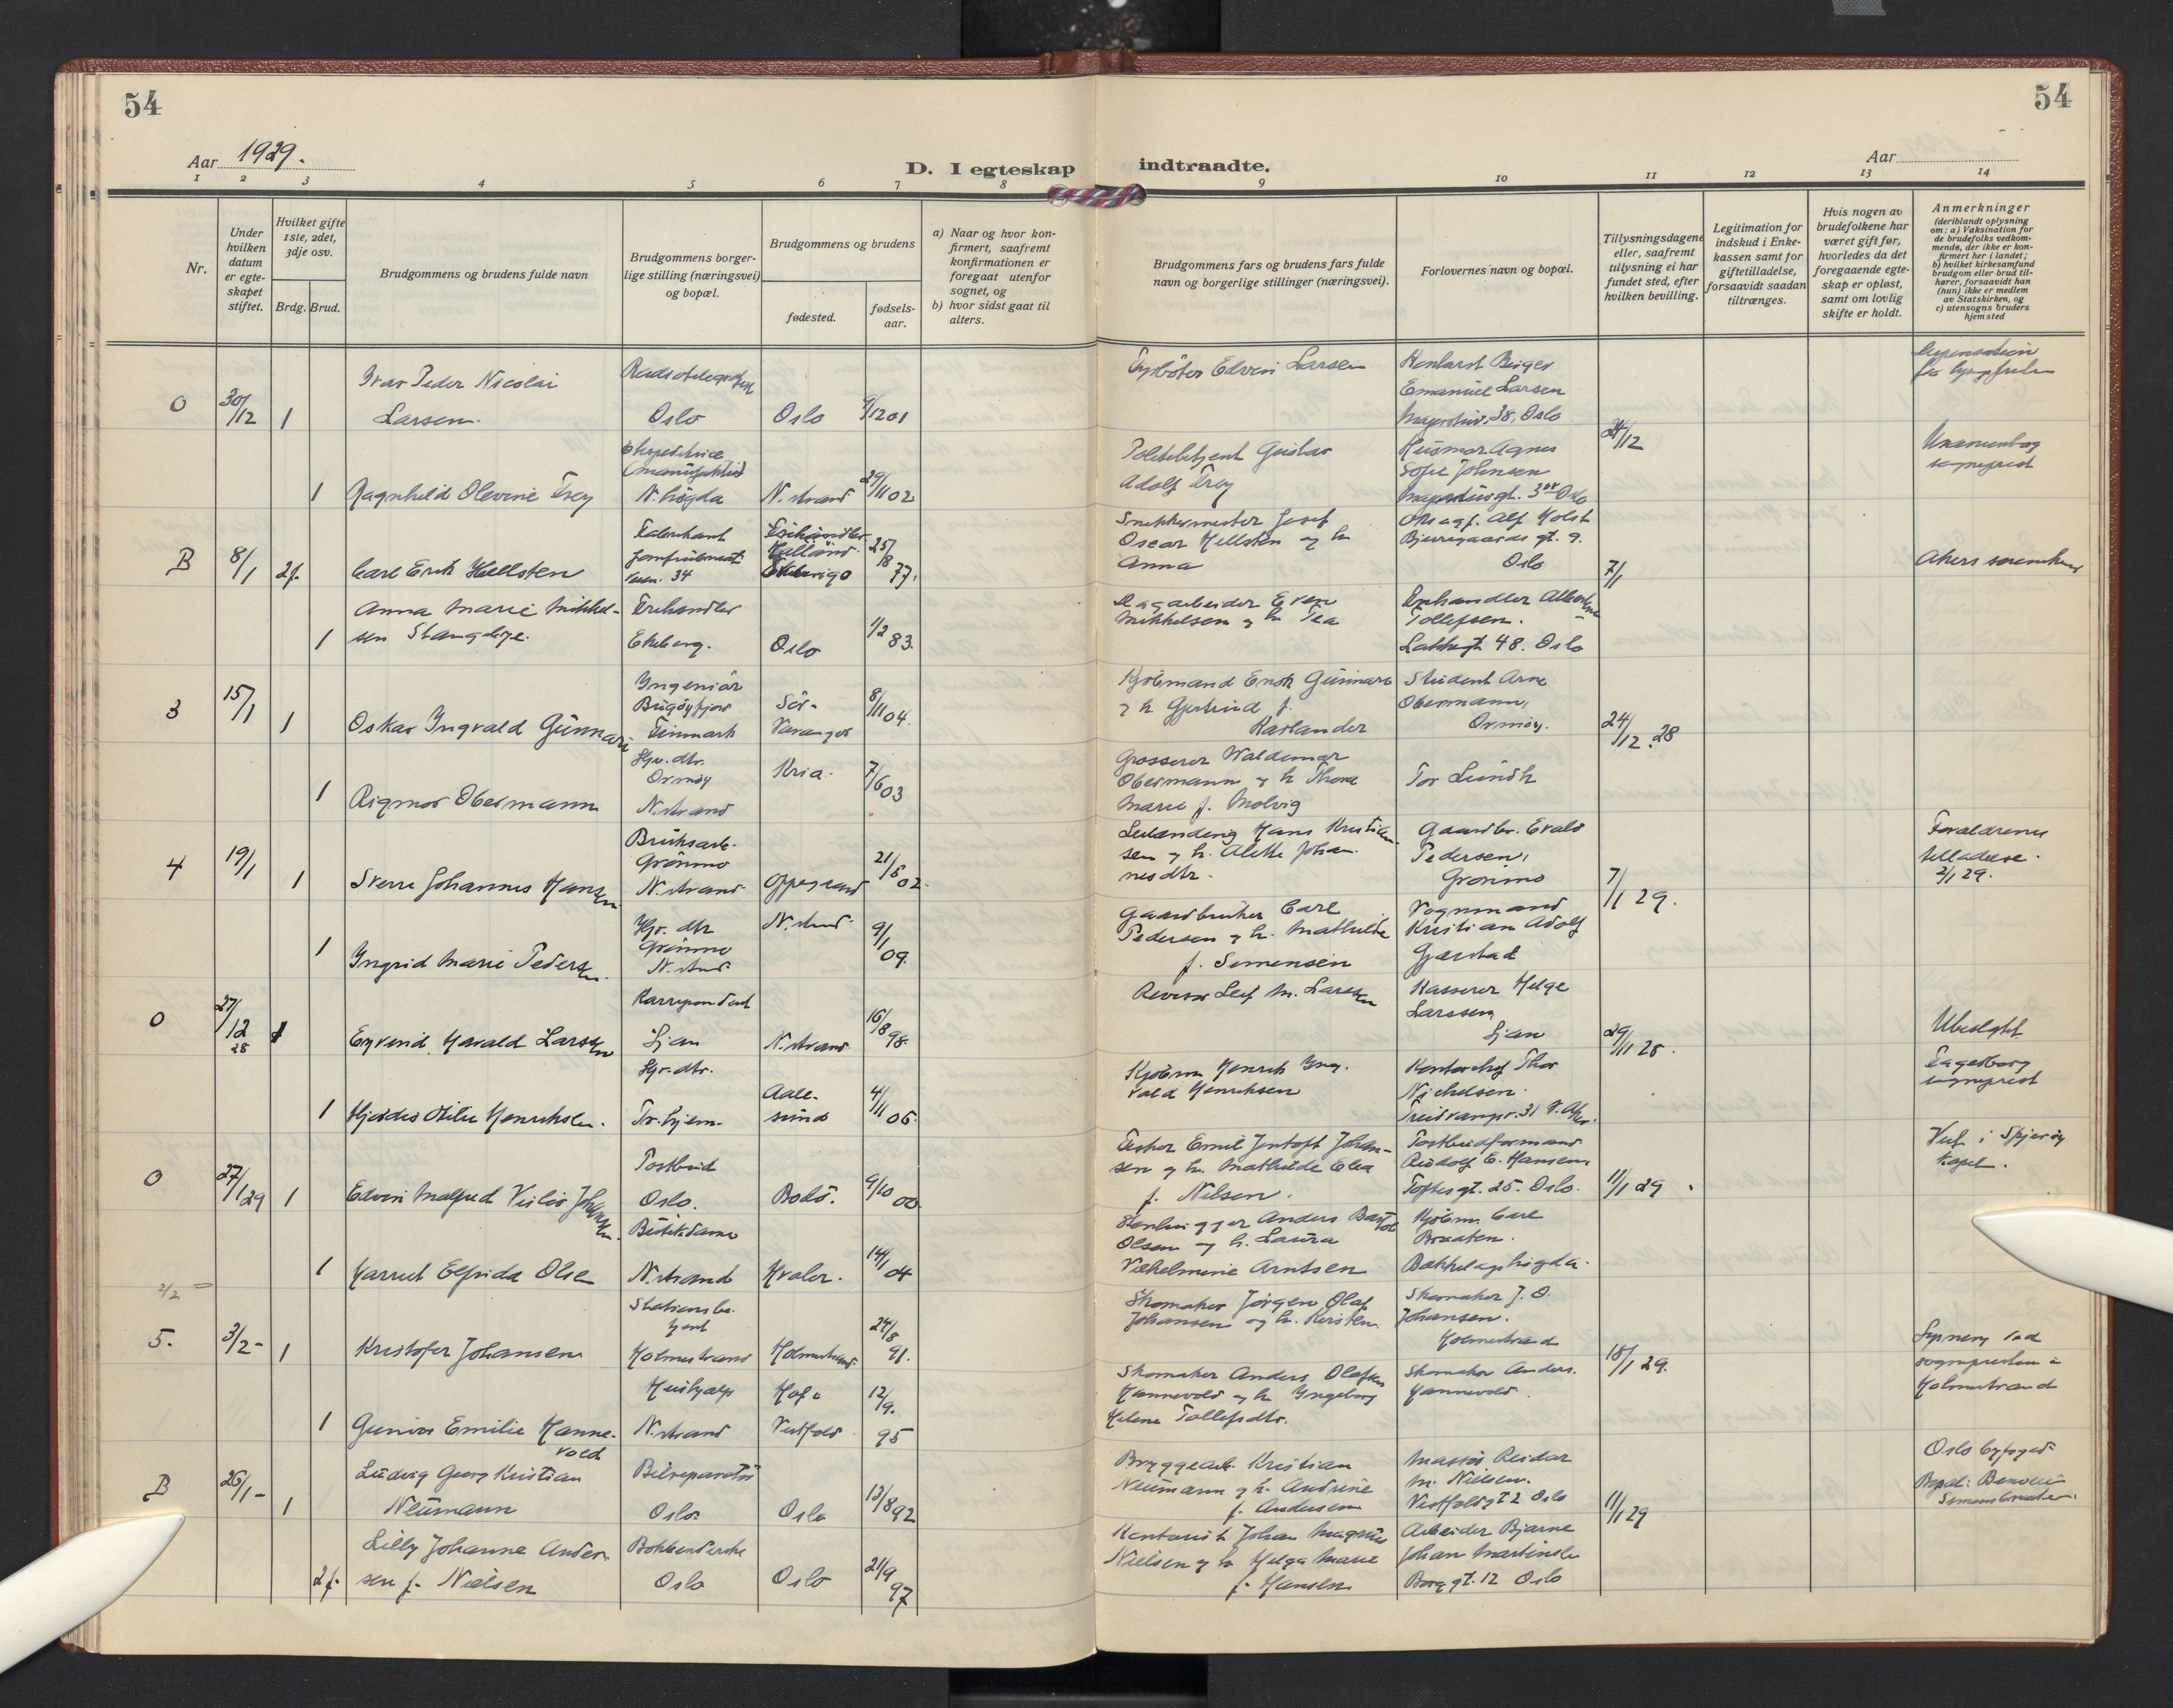 54
54
Aar 1929.
D. I egteskap
indtraadte.
Aar
1
2
3
4
5
6
7
8
9
10
11
12
13
14
Nr.
Under
hvilken
datum
er egte-
skapet
stiftet.
Hvilket gifte
1ste, 2det,
3dje osv.
Brdg. Brud.
Brudgommens og brudens fulde navn
Brudgommens borger-
lige stilling (næringsvei)
og bopæl.
Brudgommens og brudens
fødested.
fødsels-
aar.
a) Naar og hvor kon-
firmert, saafremt
konfirmationen er
foregaat utenfor
sognet, og
b) hvor sidst gaat til
alters.
Brudgommens fars og brudens fars fulde
navn og borgerlige stillinger (næringsvei).
Forlovernes navn og bopæl.
Tillysningsdagene
eller, saafremt
tillysning ei har
fundet sted, efter
hvilken bevilling.
Legitimation for
indskud i Enke-
kassen samt for
giftetilladelse,
forsaavidt saadan
tiltrænges.
Hvis nogen av
brudefolkene har
været gift før,
hvorledes da det
foregaaende egte-
skap er opløst,
samt om lovlig
skifte er holdt.
Anmerkninger
(deriblandt oplysning
om: a) Vaksination for
de brudefolks vedkom-
mende, der ikke er kon-
firmert her i landet;
b) hvilket kirkesamfund
brudgom eller brud til-
hører, forsaavidt han
(hun) ikke er medlem
av Statskirken, og
c) utensogns bruders
hjemsted
0
30/12
1
Ivar Peder Nicolai
Larsen.
Radiotelegrafist
Oslo
Oslo
9/12 01
Fyrbøter Edvin Larsen
Birger
Emanuel Larsen
38. Oslo
24/12
1
Ragnhild Olevine Frey
(manufaktur)
N. høgda
N. strand
29/11 02
Politibetjent Gustav
Adolf Frey
Husmor Agnes
Sofie Johnsen
Oslo
Uranienborg
sogneprest
B
8/1
2f.
Carl Erik Hellsten
Fabrikant
34
Halland
25/8 77.
Snekkermester Josef
Oscar Hellsten og h
Anna
Alf Holst
Bjerregaards gt. 9.
Oslo
7/1
Akers sorenskriver
1
Anna Marie Mikkel-
sen Stangebye.
Frihandler
Ekeberg.
Oslo
1/2 83.
Even
Mikkelsen og h. Tea
Tollefsen.
48. Oslo
3
15/1
1
Oskar Ingvald Gunnari
Ingeniør
Bugøyfjord
Finmark
Sør-
Varanger
8/11 04.
Kjøbmand Enok Gunnari
og h. Gjertrud f.
Raslander
Student Arne
Obermann,
Ormøy.
24/12.28
1
Rigmor Obermann
Hjv. dtr.
Ormøy
N. strand
Kria.
7/6 03
Grosserer Waldemar
Obermann og h Thora
Marie f. Molvig
Tor Lundh
4
19/1
1
Sverre Johannes Hansen
Bruksarb.
Grønmo
N. strand
Oppegaard
21/5 02.
Hans Kristian
sen og h. Alette Johan-
nesdtr.
Gaardbr. Evald
Pedersen,
Grønmo
7/1 29.
Forældrenes
tilladelse.
2/1 29.
1
Ingrid Marie Pedersen.
Hjv. dtr
Grønmo
N. strand
N. strand
9/1 09.
Gaardbruker Carl
Pedersen og h. Mathilde
f. Simensen
Vognmand
Kristian Adolf
Gjerstad
0
27/12 28
1
Eyvind Harald Larssen
Korrespondent
Ljan
N. strand
16/8 98.
Revisor Leif M. Larssen
Kasserer Helge
Larssen
Ljan
29/11 28.
Ubesluttet
1
Hjørdis Otilie Henriksen.
Hjv. dtr.
Tr. hjem.
Aale-
sund
4/11 06.
Kjøbm Henrik Ing-
vald Henriksen
Kontorchef Thor
Nickelsen
31 V. Aker.
Fagerborg
sogneprest
0
27/1 29
1
Edvin Malfred Veiløs Johansen.
Postbud
Oslo.
Bodø.
9/10 00
Fisker Emil Jentoft Johan-
sen og h. Mathilde Elea
f. Nilsen.
Postbudformand
Rudolf E. Hansen
Toftesgt. 25. Oslo.
11/1 29
Viet i Spjerøy
kapel.
1
Harriet Elfrida Olsen
Butikdame
N. strand
Hvaler.
14/1 04
Stenhugger Anders Bastol
Olsen og h. Laura
Vilhelmine Arntsen
Kjøbm. Carl
Braaten.
Bækkelagshøgda.
2/2
5.
3/2-
1
Kristofer Johansen
Stationsbe-
tjent
Holmestrand
Holmestrand
24/8 91.
Skomaker Jørgen Olaf
Johansen og h. Kirsten
Skomaker J. O.
Johansen.
Holmestrand
18/1 29.
Lysning ved
sognepresten i
Holmestrand
1
Gunvor Emilie Hanne-
vold
Hushjælp
N. strand
Hof i
Vestfold
12/9. 95
Skomaker Anders Olafsen
Hannevold og h. Ingeborg
Helene Tollefsdtr.
Skomaker Anders.
Hannevold.
B
26/1-
1
Ludvig Georg Kristian
Neumann
Bilreparatør
Oslo
Oslo
13/8 92
Bryggearb. Kristian
Neumann og h. Andrine
f. Andersen
Reidar
M. Nielsen.
Vestfoldgt 2 Oslo
11/1 29
Oslo byfoged
2f.
Lilly Johanne Ander-
sen f. Nielsen
Bokbinderske
Oslo
Oslo
21/9 97
Kontorist Johan Magnus
Nielsen og h Helga Marie
f. Hansen
Arbeider Bjarne
Johan Martinsen
Borggt. 12 Oslo